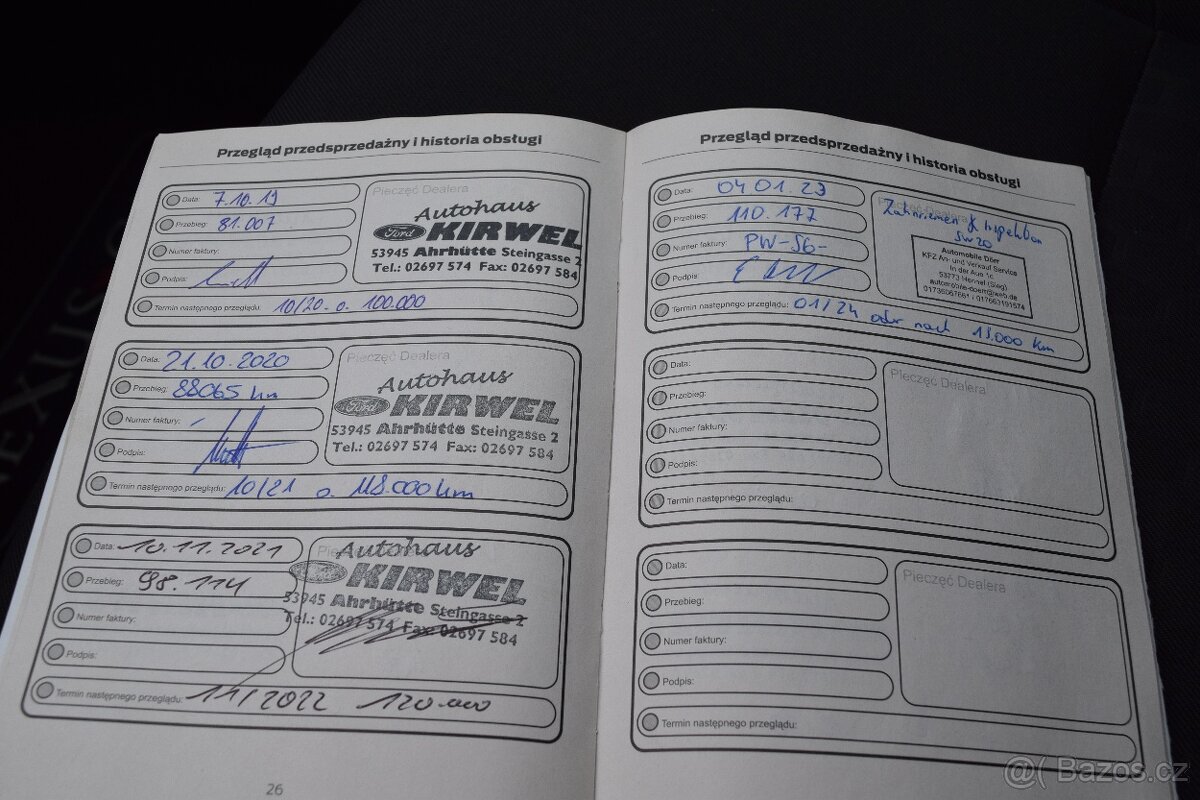 Przegląd przedsprzedażny i historia obsługi
Data: 7.10.19
Przebieg: 81.007
Numer faktury:
Podpis:
Termin następnego przeglądu: 10/20 o. 100.000
Pieczęć Dealera
Autohaus
Ford KIRWEL
53945 Ahrhütte Steingasse 2
Tel.: 02697 574 Fax: 02697 584
Data: 21.10.2020
Przebieg: 88065 km
Numer faktury: -
Podpis:
Termin następnego przeglądu: 10/21 o. 118.000 km
Pieczęć Dealera
Autohaus
Ford KIRWEL
53945 Ahrhütte Steingasse 2
Tel.: 02697 574 Fax: 02697 584
Data: 10.11.2021
Przebieg: 98.114
Numer faktury:
Podpis:
Termin następnego przeglądu: 11/2022 120.000
Autohaus
KIRWEL
53945 Ahrhütte Steingasse 2
Tel.: 02697 574 Fax: 02697 584
26
Przegląd przedsprzedażny i historia obsługi
Data: 04 01. 23
Przebieg: 110.177
Numer faktury: PW-S6-
Podpis:
Termin następnego przeglądu: 01/24 oder nach 13.000 km
Pieczęć Dealera
Zahnriemen & Inspektion
5W20
Automobile Dörr
KFZ An- und Verkauf Service
In der Aue 1c
53773 Hennef (Sieg)
Data:
Przebieg:
Numer faktury:
Podpis:
Termin następnego przeglądu:
Pieczęć Dealera
Data:
Przebieg:
Numer faktury:
Podpis:
Termin następnego przeglądu:
Pieczęć Dealera
NEXUS
@( Bazos.cz